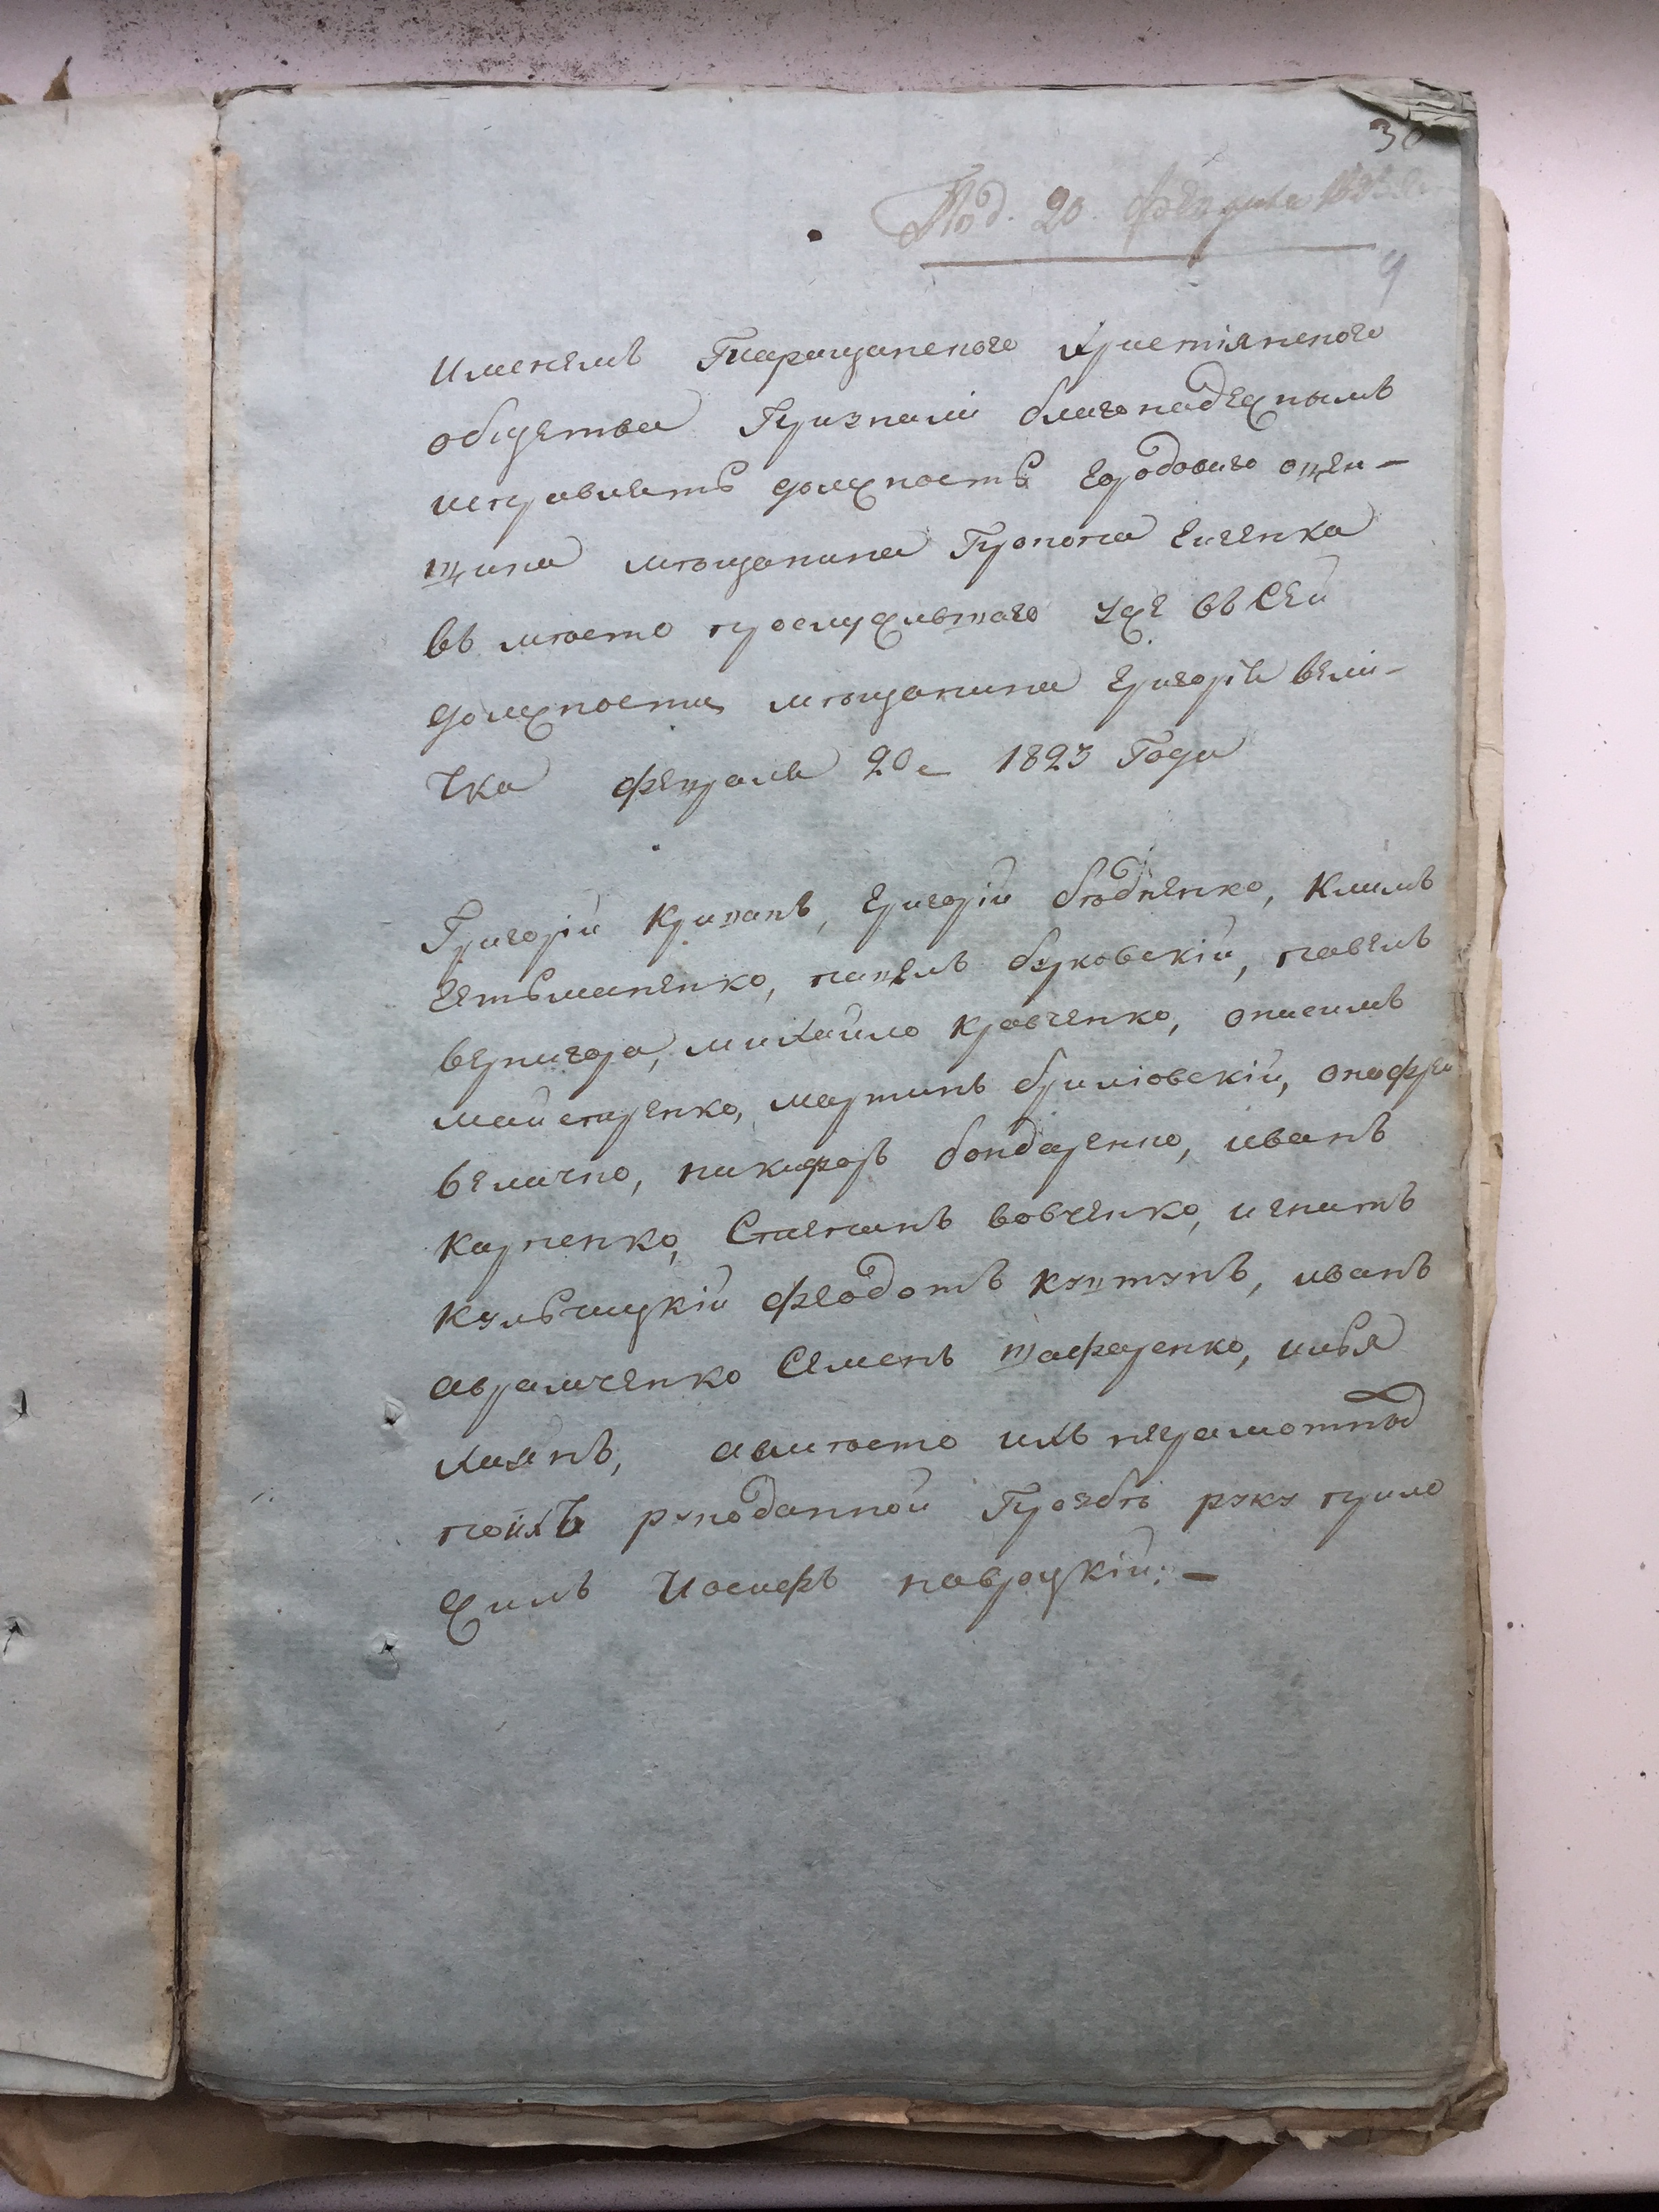 30
Под. 20. февраля 1823
9
Именемъ Таращанского християнского
общества Признали благонадежнымъ
исправлять должность городового оцен-
щика мещанина Прокопа Енченка
въ место прослужившаго уже въ сей
должности мещанина григорія вели-
чка февраля 20 1823 Года
Григорій Криванъ, григорій бѣдненко, Климъ
гетьманенко, павелъ буковскій, павелъ
вернигора, михайло кравченко, онисимъ
майстренко, мартинъ бриліовскій, онофрей
величко, никифоръ бондаренко, иванъ
карпенко, Степанъ вовченко, игнатъ
кульчицкій феодотъ ковтунъ, иванъ
авраменко Семенъ шафаренко, илья
а вместо ихъ неграмотных
по ихъ рукоданной Прозбѣ руку прило
жилъ Иосифъ навроцкій. —